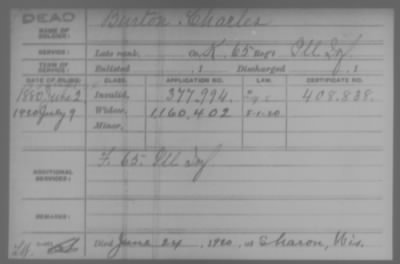 DEAD
NAME OF SOLDIER:
Burton Charles
SERVICE:
Late rank, Co. K, 65 Reg't Ill Inf
TERM OF SERVICE:
Enlisted , 1 Discharged , 1
DATE OF FILING. CLASS. APPLICATION NO. LAW. CERTIFICATE NO.
1880 June 2 Invalid, 377.994. 408.838.
1920 July 9 Widow, 1,160,402
Minor,
ADDITIONAL SERVICES:
F. 65. Ill Inf
REMARKS:
Died June 24, 1920, at Sharon, Wis.